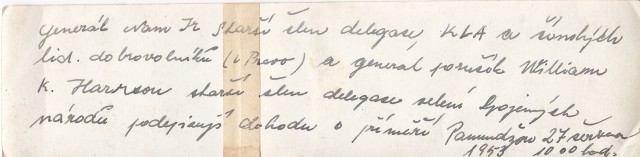 Generál Nam Ir starší člen delegace KLA a čínských
lid. dobrovolníků (v Pravo) a generál poručík William
K. Harrison starší člen delegace velení Spojených
národů podepisují dohodu o příměří Panmundžon 27 června
1953 10 00 hod.